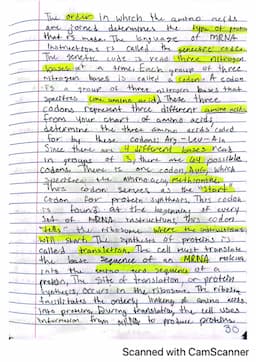 The order in which the amino acids
are joined determines the type of protein
that is made. The language of mRNA
instructions is called the genetic code.
The genetic code is read three nitrogen
bases at a time. Each group of three
nitrogen bases is called a codon. A codon
is a group of three nitrogen bases that
specifies one amino acid. These three
codons represent three different amino acids
from your chart of amino acids,
determine the three amino acids coded
for by these codons: Arg-Leu-Ala
Since there are 4 different bases read
in groups of 3, there are 64 possible
codons. There is one codon, AUG, which
specifies the amino acid methionine.
This codon serves as the "start"
codon for protein synthesis. This codon
is found at the beginning of every
set of mRNA instructions. This codon
"tells" the ribosome where the instructions
will start. The synthesis of proteins is
called translation. The cell must translate
the base sequence of an mRNA molecule
into the amino acid sequence of a
protein. The site of translation, or protein
synthesis, occurs in the ribosome. The ribosome
facilitates the orderly linking of amino acids
into proteins. During translation, the cell uses
information from mRNA to produce proteins.
30
Scanned with CamScanner